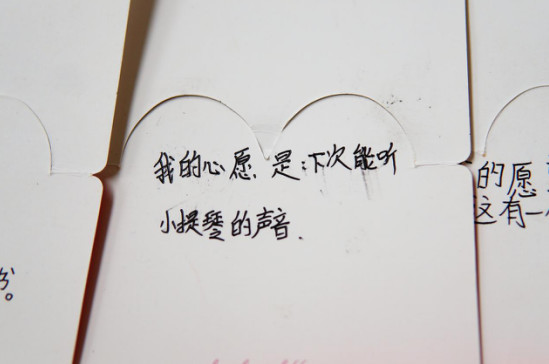 我的心愿是:下次能听
小提琴的声音.
的愿
这有一